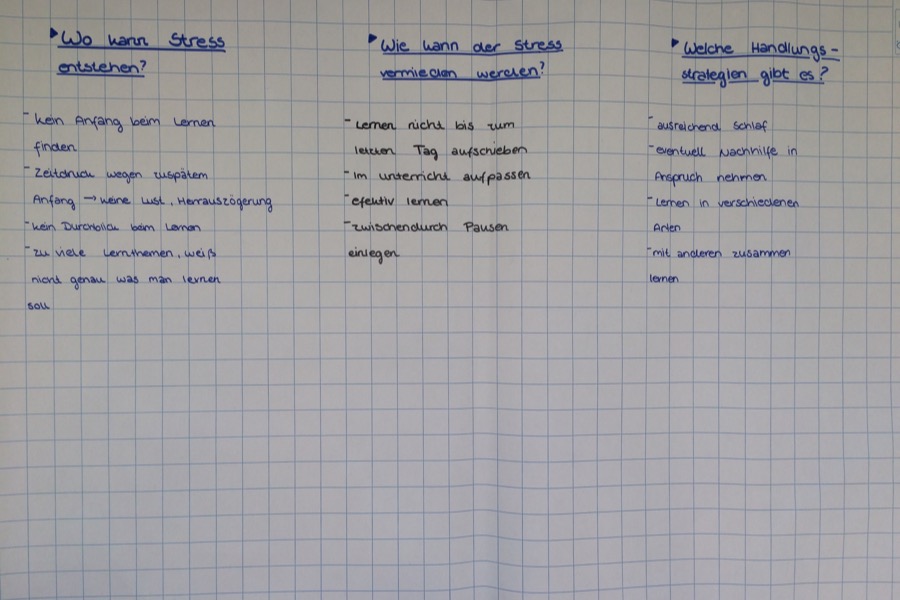 Wo kann Stress
entstehen?
- kein Anfang beim Lernen
finden
- Zeitdruck wegen zuspätem
Anfang → keine Lust, Herrauszögerung
- kein Durchblick beim Lernen
- zu viele Lernthemen, weiß
nicht genau was man lernen
soll
Wie kann der Stress
vermieden werden?
- Lernen nicht bis zum
letzten Tag aufschieben
- im unterricht aufpassen
- efektiv lernen
- zwischendurch Pausen
einlegen
Welche Handlungs-
strategien gibt es?
- ausreichend Schlaf
- eventuell Nachhilfe in
Anspruch nehmen
- Lernen in verschiedenen
Arten
- mit anderen zusammen
lernen